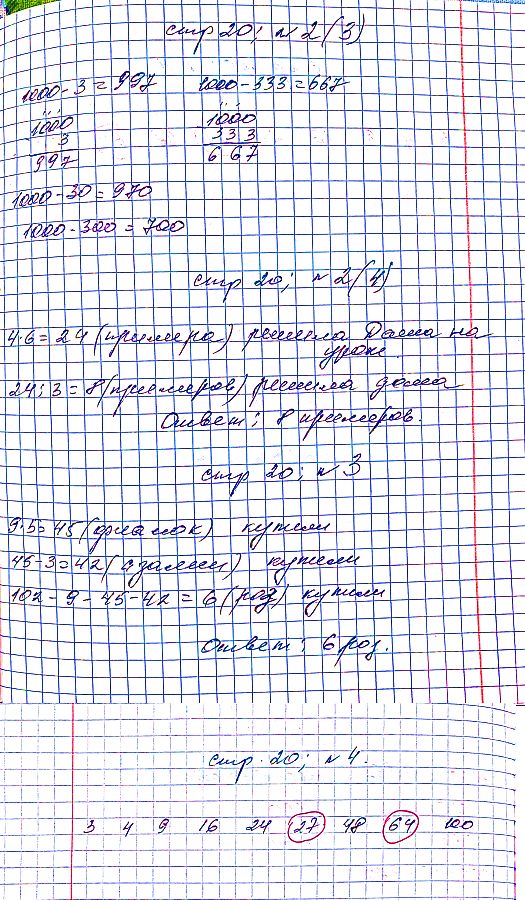 стр 20; № 2(3)
1000 - 3 = 997 1000 - 333 = 667
1000 1000
3 333
997 667
1000 - 30 = 970
1000 - 300 = 700
стр 20; № 2(4)
4·6 = 24 (примера) решила Даша на
уроке.
24 : 3 = 8 (примеров) решила дома
Ответ: 8 примеров.
стр 20; № 3
9·5 = 45 (фиалок) купили
45 - 3 = 42 (азалии) купили
102 - 9 - 45 - 42 = 6 (роз) купили
Ответ: 6 роз.
стр. 20; № 4.
3 4 9 16 24 27 48 64 100